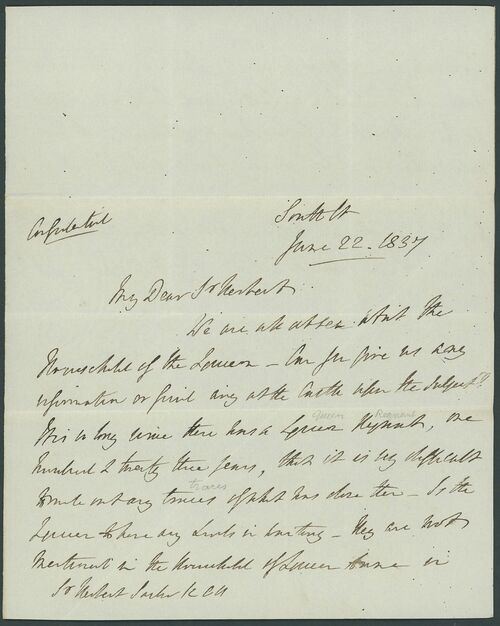 Confidential
South St
June 22. 1837
My Dear Sr Herbert
We are all at sea about the
Household of the Queen – Can you give us any
information or find any at the Castle upon the Subject?
It is so long since there has a Queen Regnant, one
Queen Regnant
hundred & twenty three years, that it is very difficult
to make out any traces of what was done then – Is the
traces
Queen to have any Lords in waiting – They are not
mentioned in the Household of Queen Anne in
Sr Herbert Taylor KCH